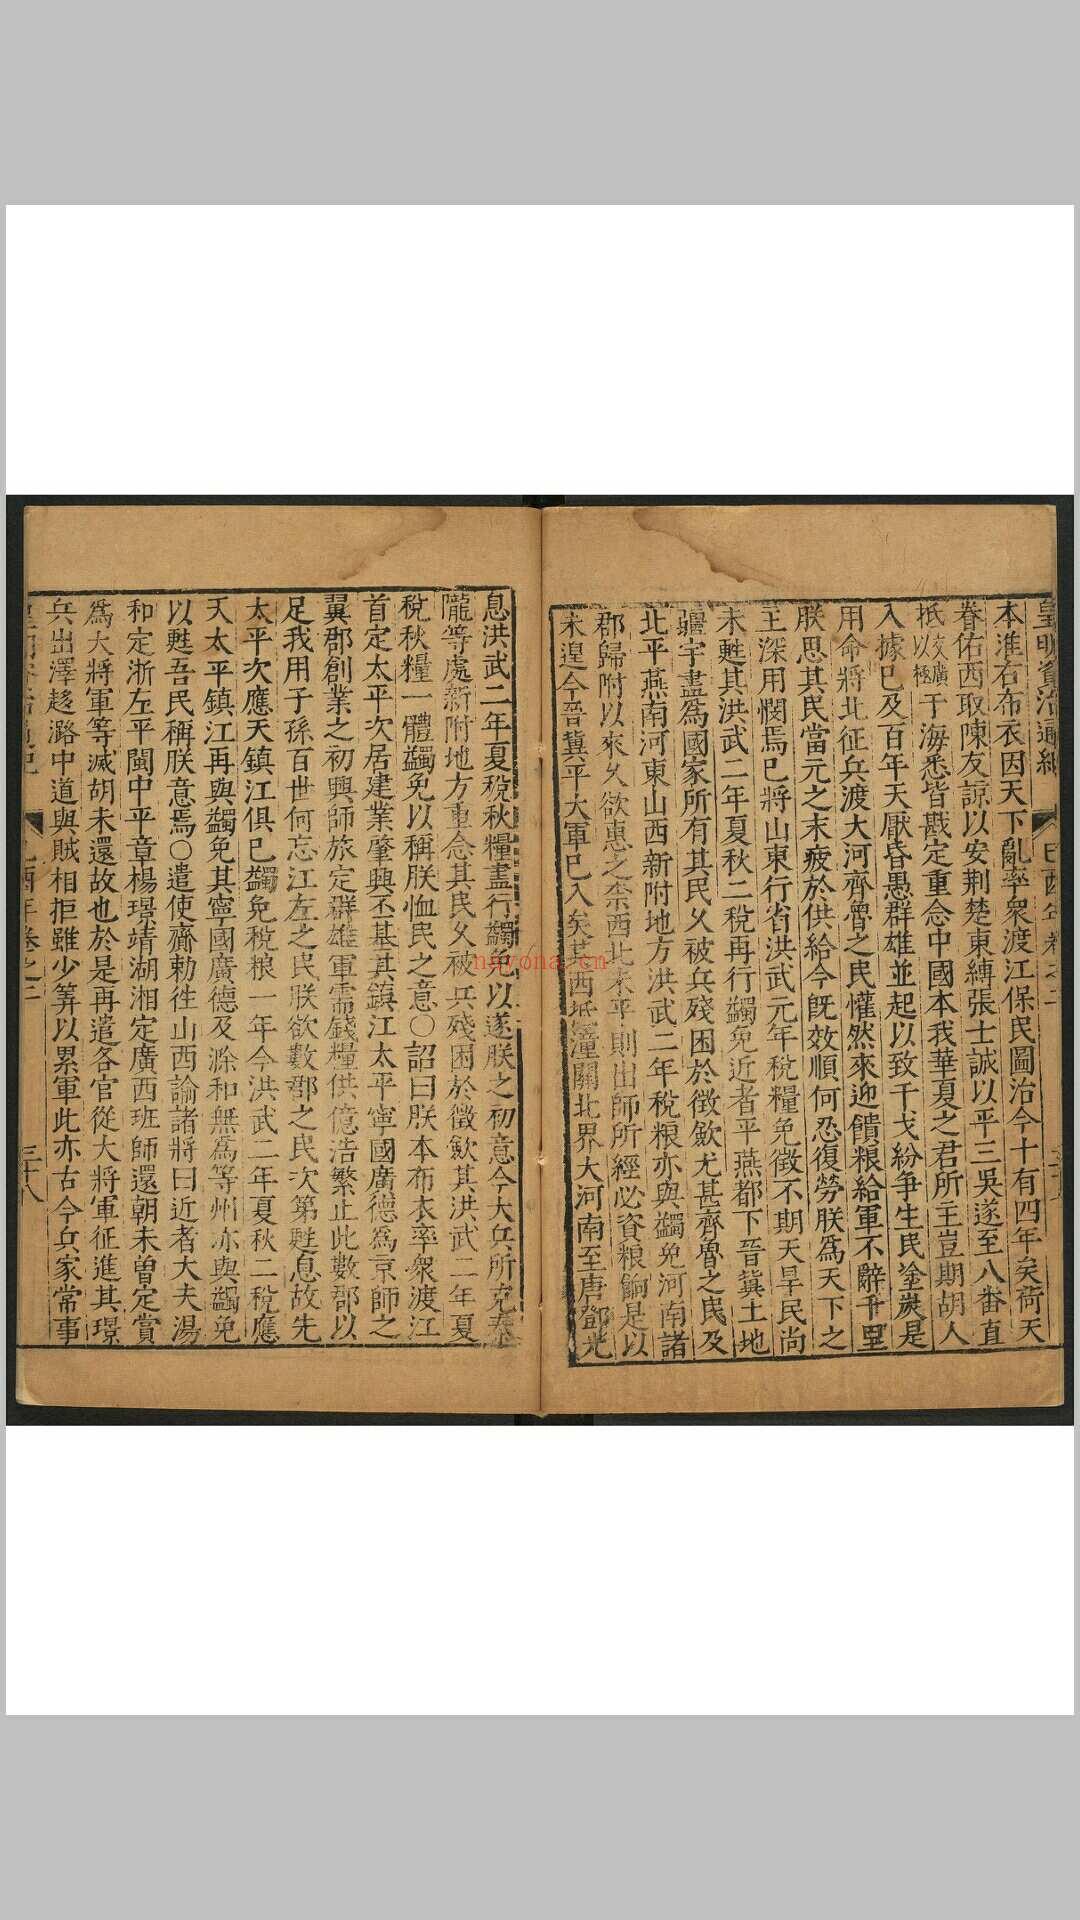 皇明資治通紀
己酉年卷之二
本淮右布衣因天下亂率衆渡江保民圖治今十有四年矣荷天
眷佑西取陳友諒以安荆楚東縛張士誠以平三吳遂至八番直
抵以交廣極于海悉皆戡定重念中國本我華夏之君所主豈期胡人
入據已及百年天厭昏愚群雄並起以致干戈紛爭生民塗炭是
用命將北征兵渡大河齊魯之民懽然來迎饋粮給軍不辭千里
朕思其民當元之末疲於供給今旣效順何忍復勞朕爲天下之
王深用憫焉已將山東行省洪武元年稅糧免徵不期天旱民尚
未甦其洪武二年夏秋二稅再行蠲免近者平燕都下晉冀土地
疆宇盡爲國家所有其民久被兵殘困於徵歛尤甚齊魯之民及
北平燕南河東山西新附地方洪武二年稅粮亦與蠲免河南諸
郡歸附以來久欲惠之柰西北未平則出師所經必資粮餉是以
未遑今晉冀平大軍已入矣其西抵潼關北界大河南至唐鄧光
息洪武二年夏稅秋糧盡行蠲免以遂朕之初意今大兵所克秦
隴等處新附地方重念其民久被兵殘困於徵歛其洪武二年夏
稅秋糧一體蠲免以稱朕恤民之意○詔曰朕本布衣率衆渡江
首定太平次居建業肇興丕基其鎮江太平寧國廣德爲京師之
翼郡創業之初興師旅定群雄軍需錢糧供億浩繁止此數郡以
足我用子孫百世何忘江左之民朕欲數郡之民次第甦息故先
太平次應天鎮江俱已蠲免稅粮一年今洪武二年夏秋二稅應
天太平鎮江再與蠲免其寧國廣德及滁和無爲等州亦與蠲免
以甦吾民稱朕意焉○遣使齎勅徃山西諭諸將曰近者大夫湯
和定浙左平閩中平章楊璟靖湖湘定廣西班師還朝未曽定賞
爲大將軍等滅胡未還故也於是再遣各官從大將軍征進其璟
兵出澤趍潞中道與賊相拒雖少筭以累軍此亦古今兵家常事
皇明資治通紀
己酉年卷之二
三十八
nayona.cn